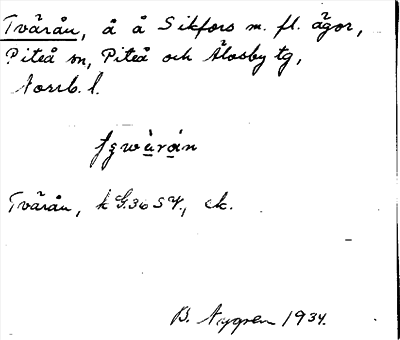 Tvärån, å å Sikfors m. fl. ägor,
Piteå sn, Piteå och Älvsby tg,
Norrb. l.
Tvärån, k G. 36 S V., ek.
B. Nygren 1934.